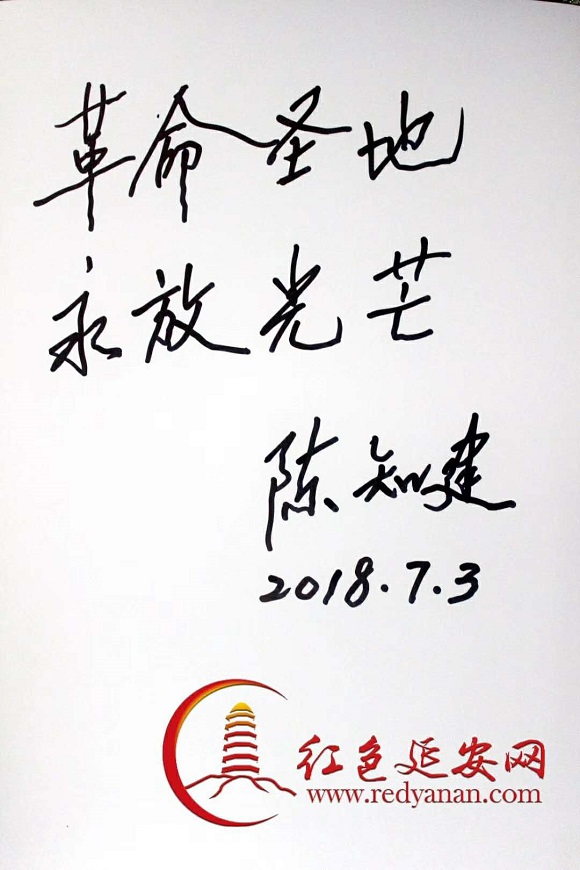 革命圣地
永放光芒
陈知建
2018.7.3
红色延安网
www.redyanan.com